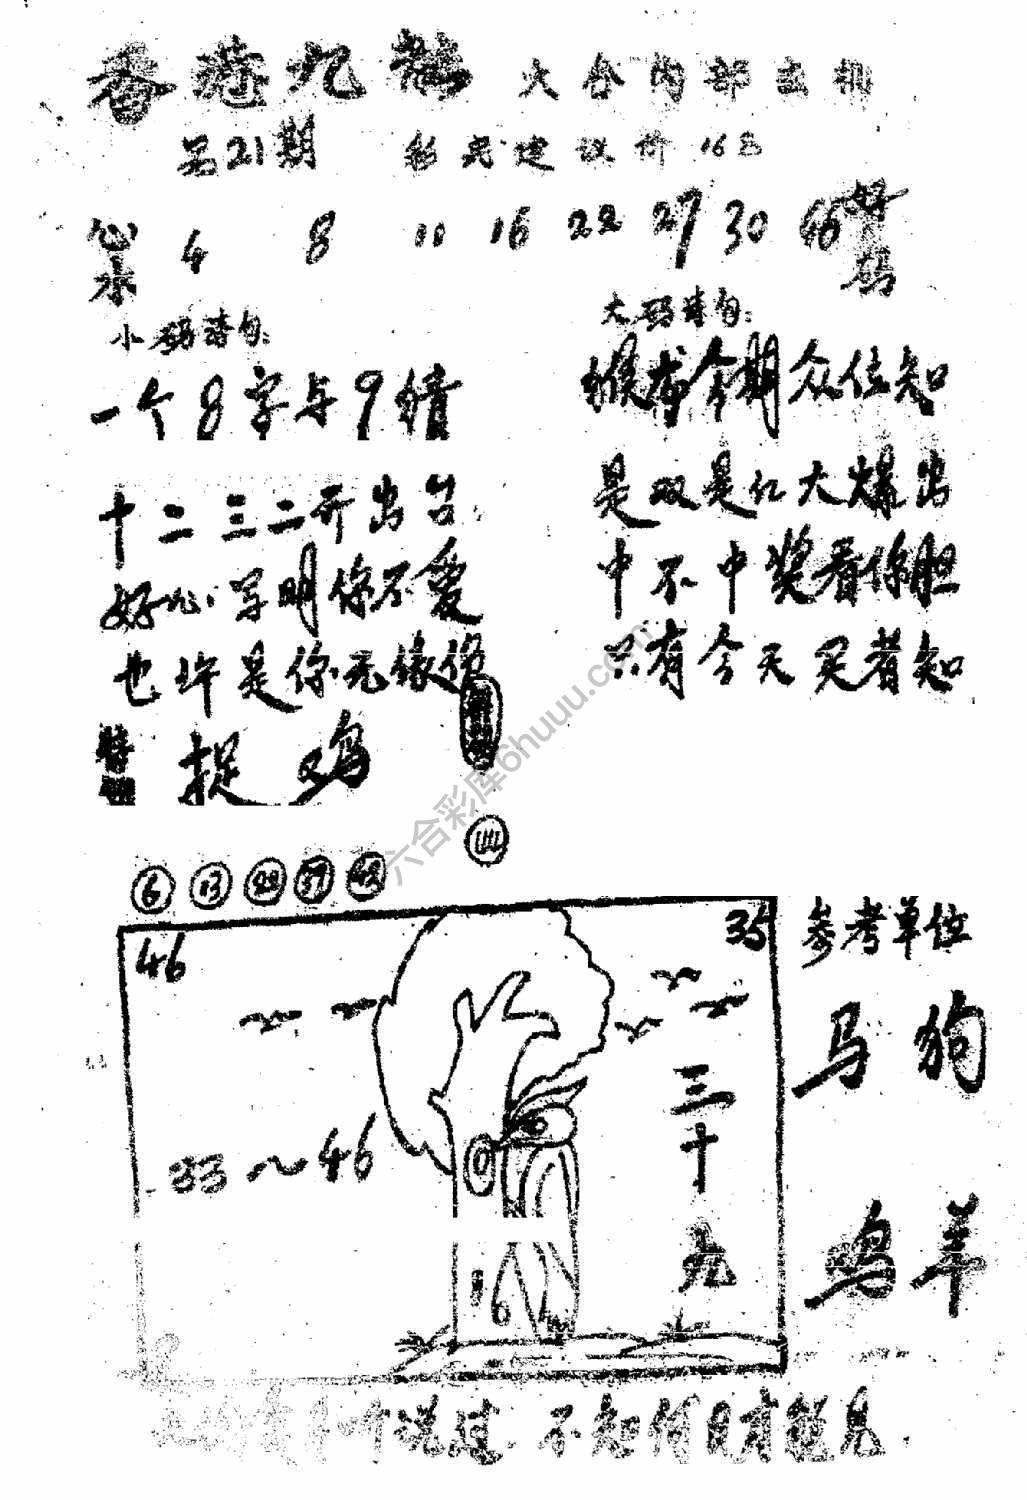 香港九龙 六合内部出批
另21期 彩民建议价16日
心水 4 8 11 16 22 27 30 46 好码
小码诗句:
一个8字与9猜
十二三二开出台
好心字明你不爱
也许是你无缘份
大码诗句:
猴有今期众位知
是双是红大爆出
中不中奖看你胆
只有今天买者知
捉鸡
44
6 13 22 37 42
六合彩库6huuu.com
46 35
33~46
三十九
0
16
参考单位
马 狗
鸡 羊
听说过 不知何日有能见